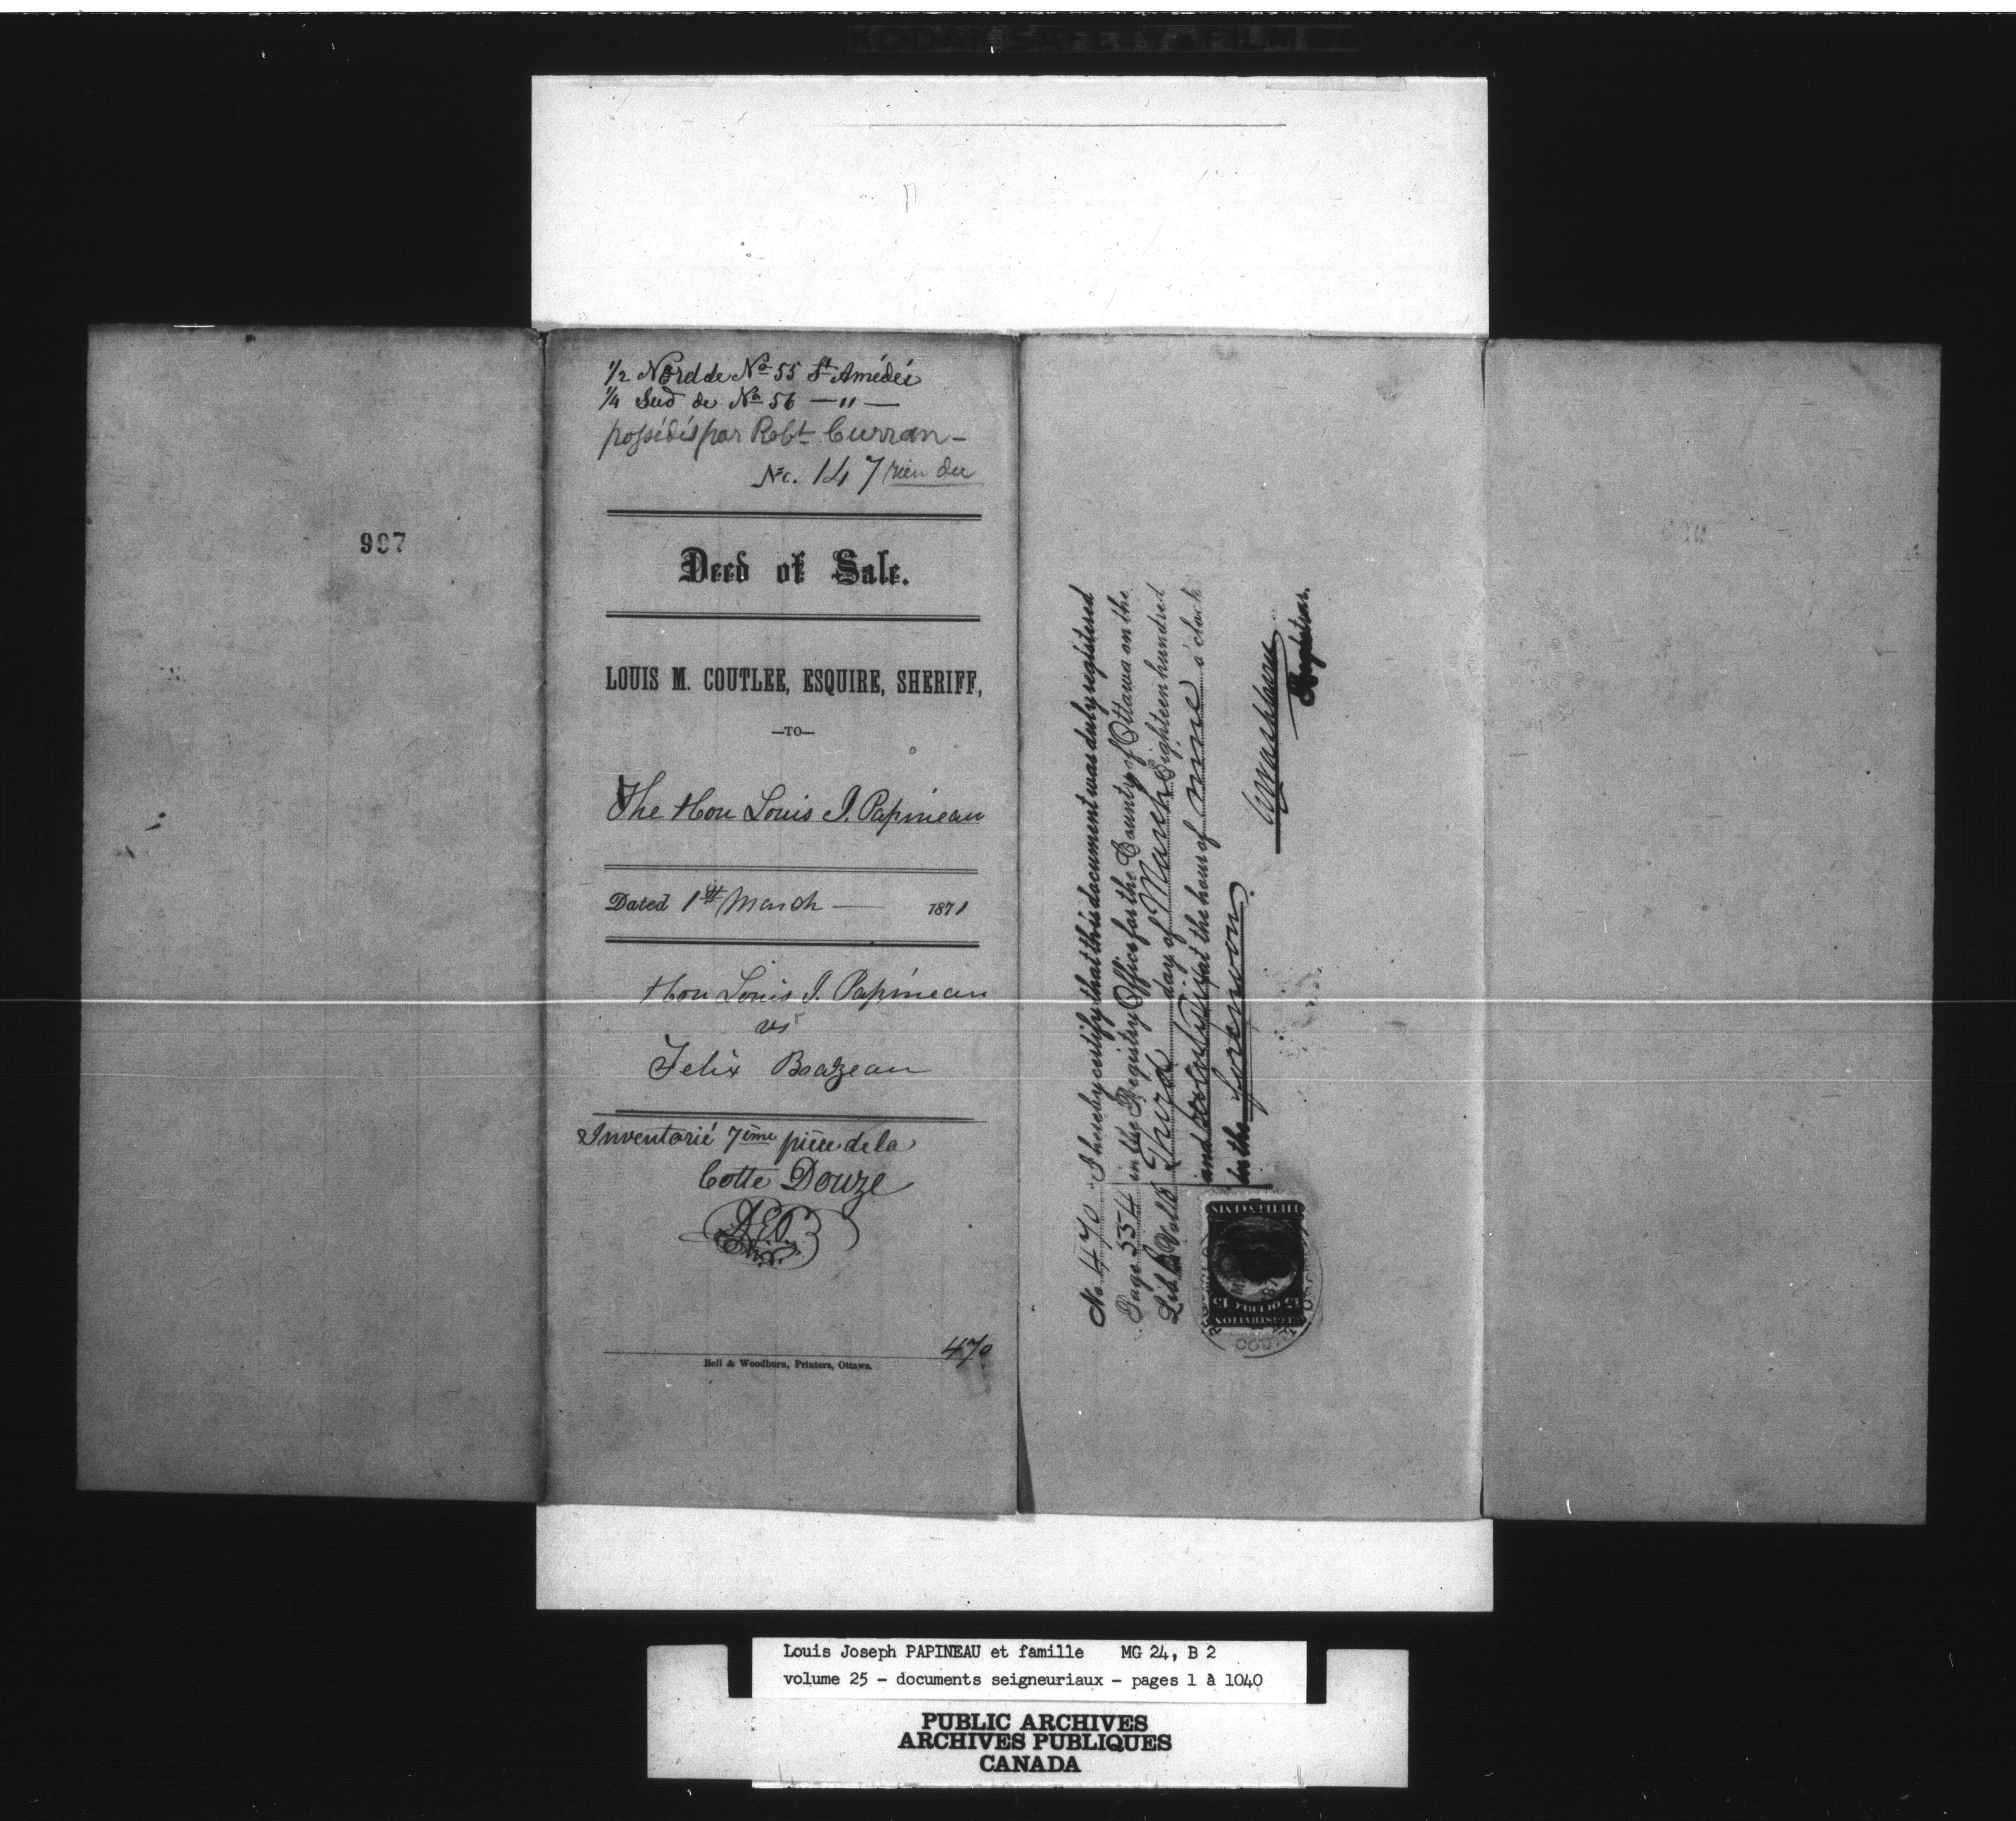 KODAK SAFETY FILM
997
1/2 Nord de No 55 St Amédée
1/4 Sud de No 56 — " —
possédés par Robt Curran –
No. 147 rien du
Deed of Sale.
LOUIS M. COUTLEE, ESQUIRE, SHERIFF,
—TO—
The Hon Louis J. Papineau
Dated 1st March — 1871
Hon Louis J. Papineau
vs
Felix Brazeau
Inventorié 7ème pièce de la
Cotte Douze
470
Bell & Woodburn, Printers, Ottawa.
No. 470 I hereby certify that this document was duly registered
Page 554 in the Registry Office for the County of Ottawa on the
Lib B Vol Third day of March Eighteen hundred
and at the hour of nine o'clock
in the forenoon.
Washburn
Registrar.
Louis Joseph PAPINEAU et famille MG 24, B 2
volume 25 - documents seigneuriaux - pages 1 à 1040
PUBLIC ARCHIVES
ARCHIVES PUBLIQUES
CANADA